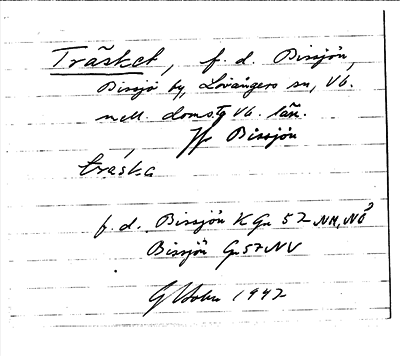 Träsket, f. d. Bissjön,
Bissjö by, Lövångers sn, Vb.
mell. doms. Vb. län.
Jfr Bissjön
träska
f. d. Bissjön K Gn 52 NN, NÖ
Bissjön Gn 52 NV
Holm 1942